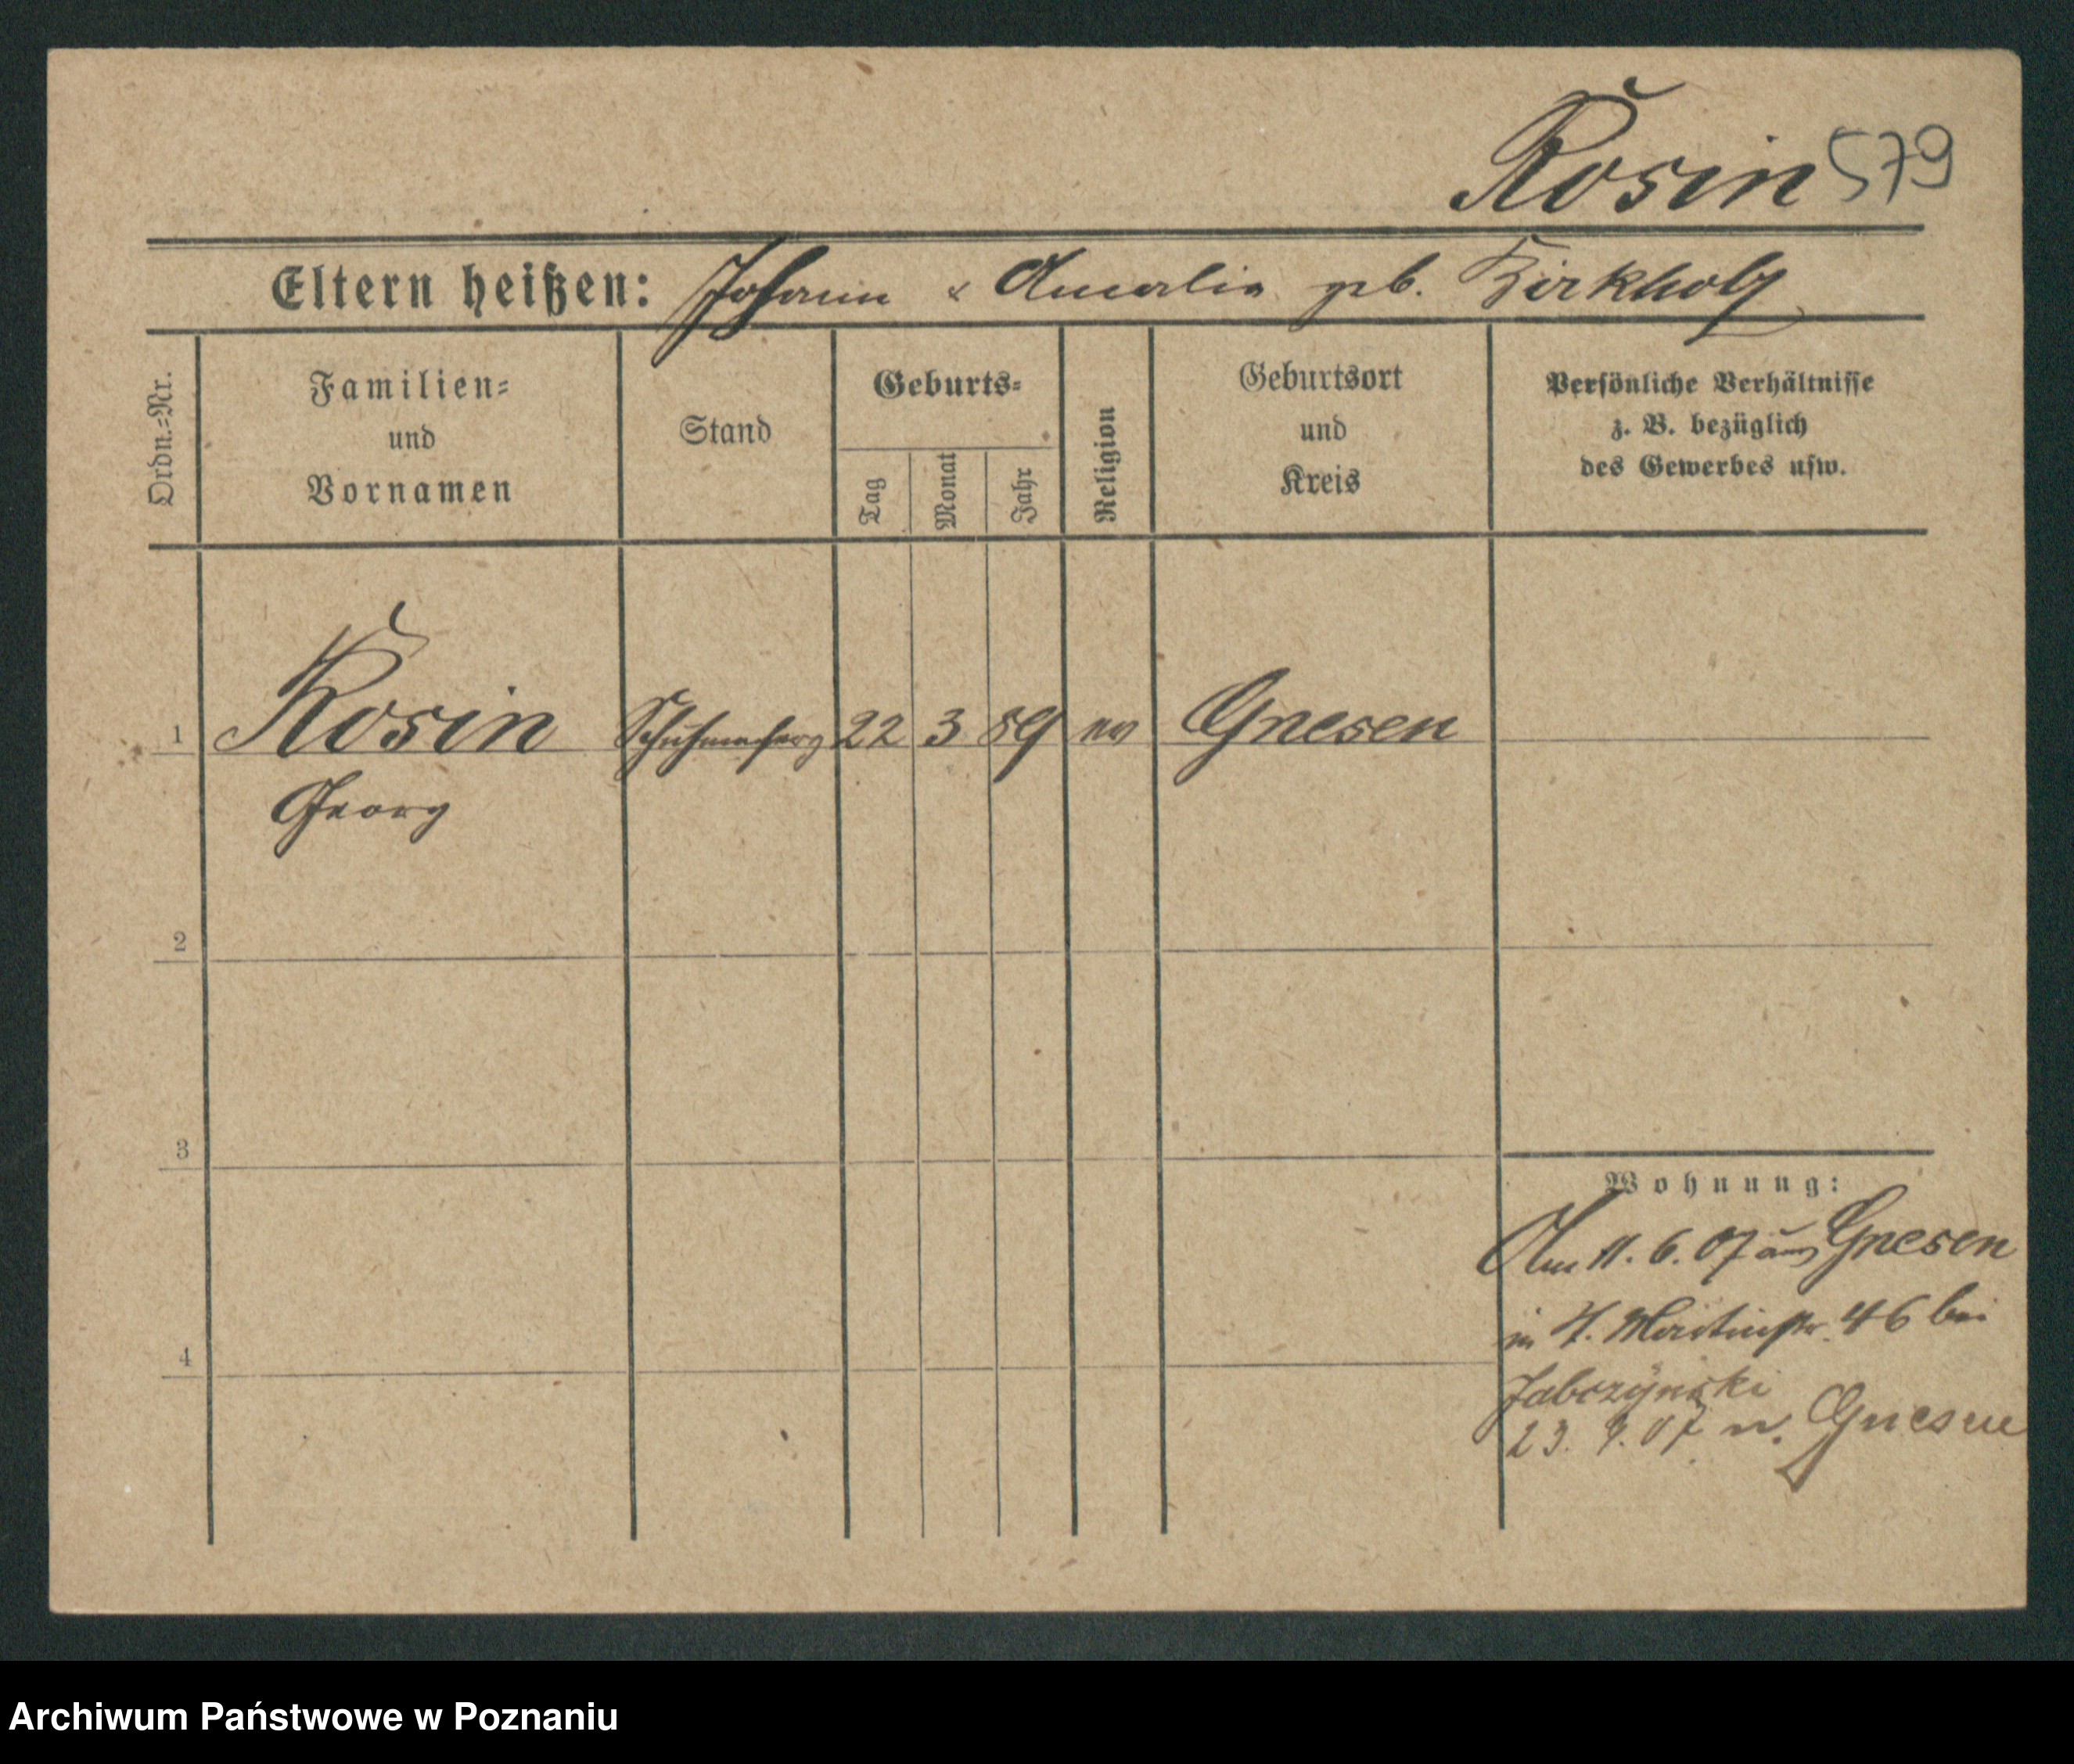 Rosin 579
Eltern heißen: Johann & Amalia geb. Birkholz
Ordn.=Nr.
Familien=
und
Vornamen
Stand
Geburts=
Tag
Monat
Jahr
Religion
Geburtsort
und
Kreis
Persönliche Verhältnisse
z. B. bezüglich
des Gewerbes usw.
1 Rosin 22 3 89 ev Gnesen
Georg
2
3
4
Wohnung:
Am 11. 6. 07 aus Gnesen
in Martinstr. 46 bei
Jabczynski
23. 9. 07 n. Gnesen
Archiwum Państwowe w Poznaniu